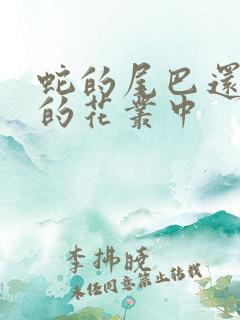 蛇的尾巴還
的花叢中
李拂曉
未经同意禁止转载